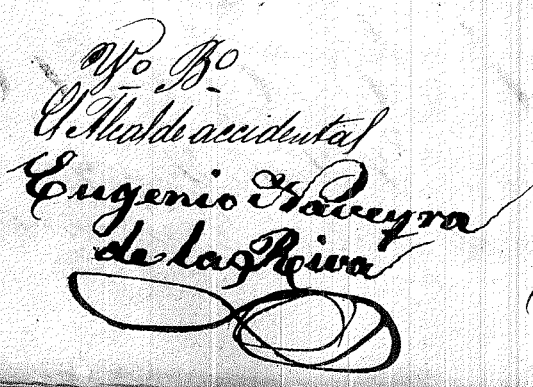 Vº Bº
El Alcalde accidental
Eugenio Naveyra
de la Riva